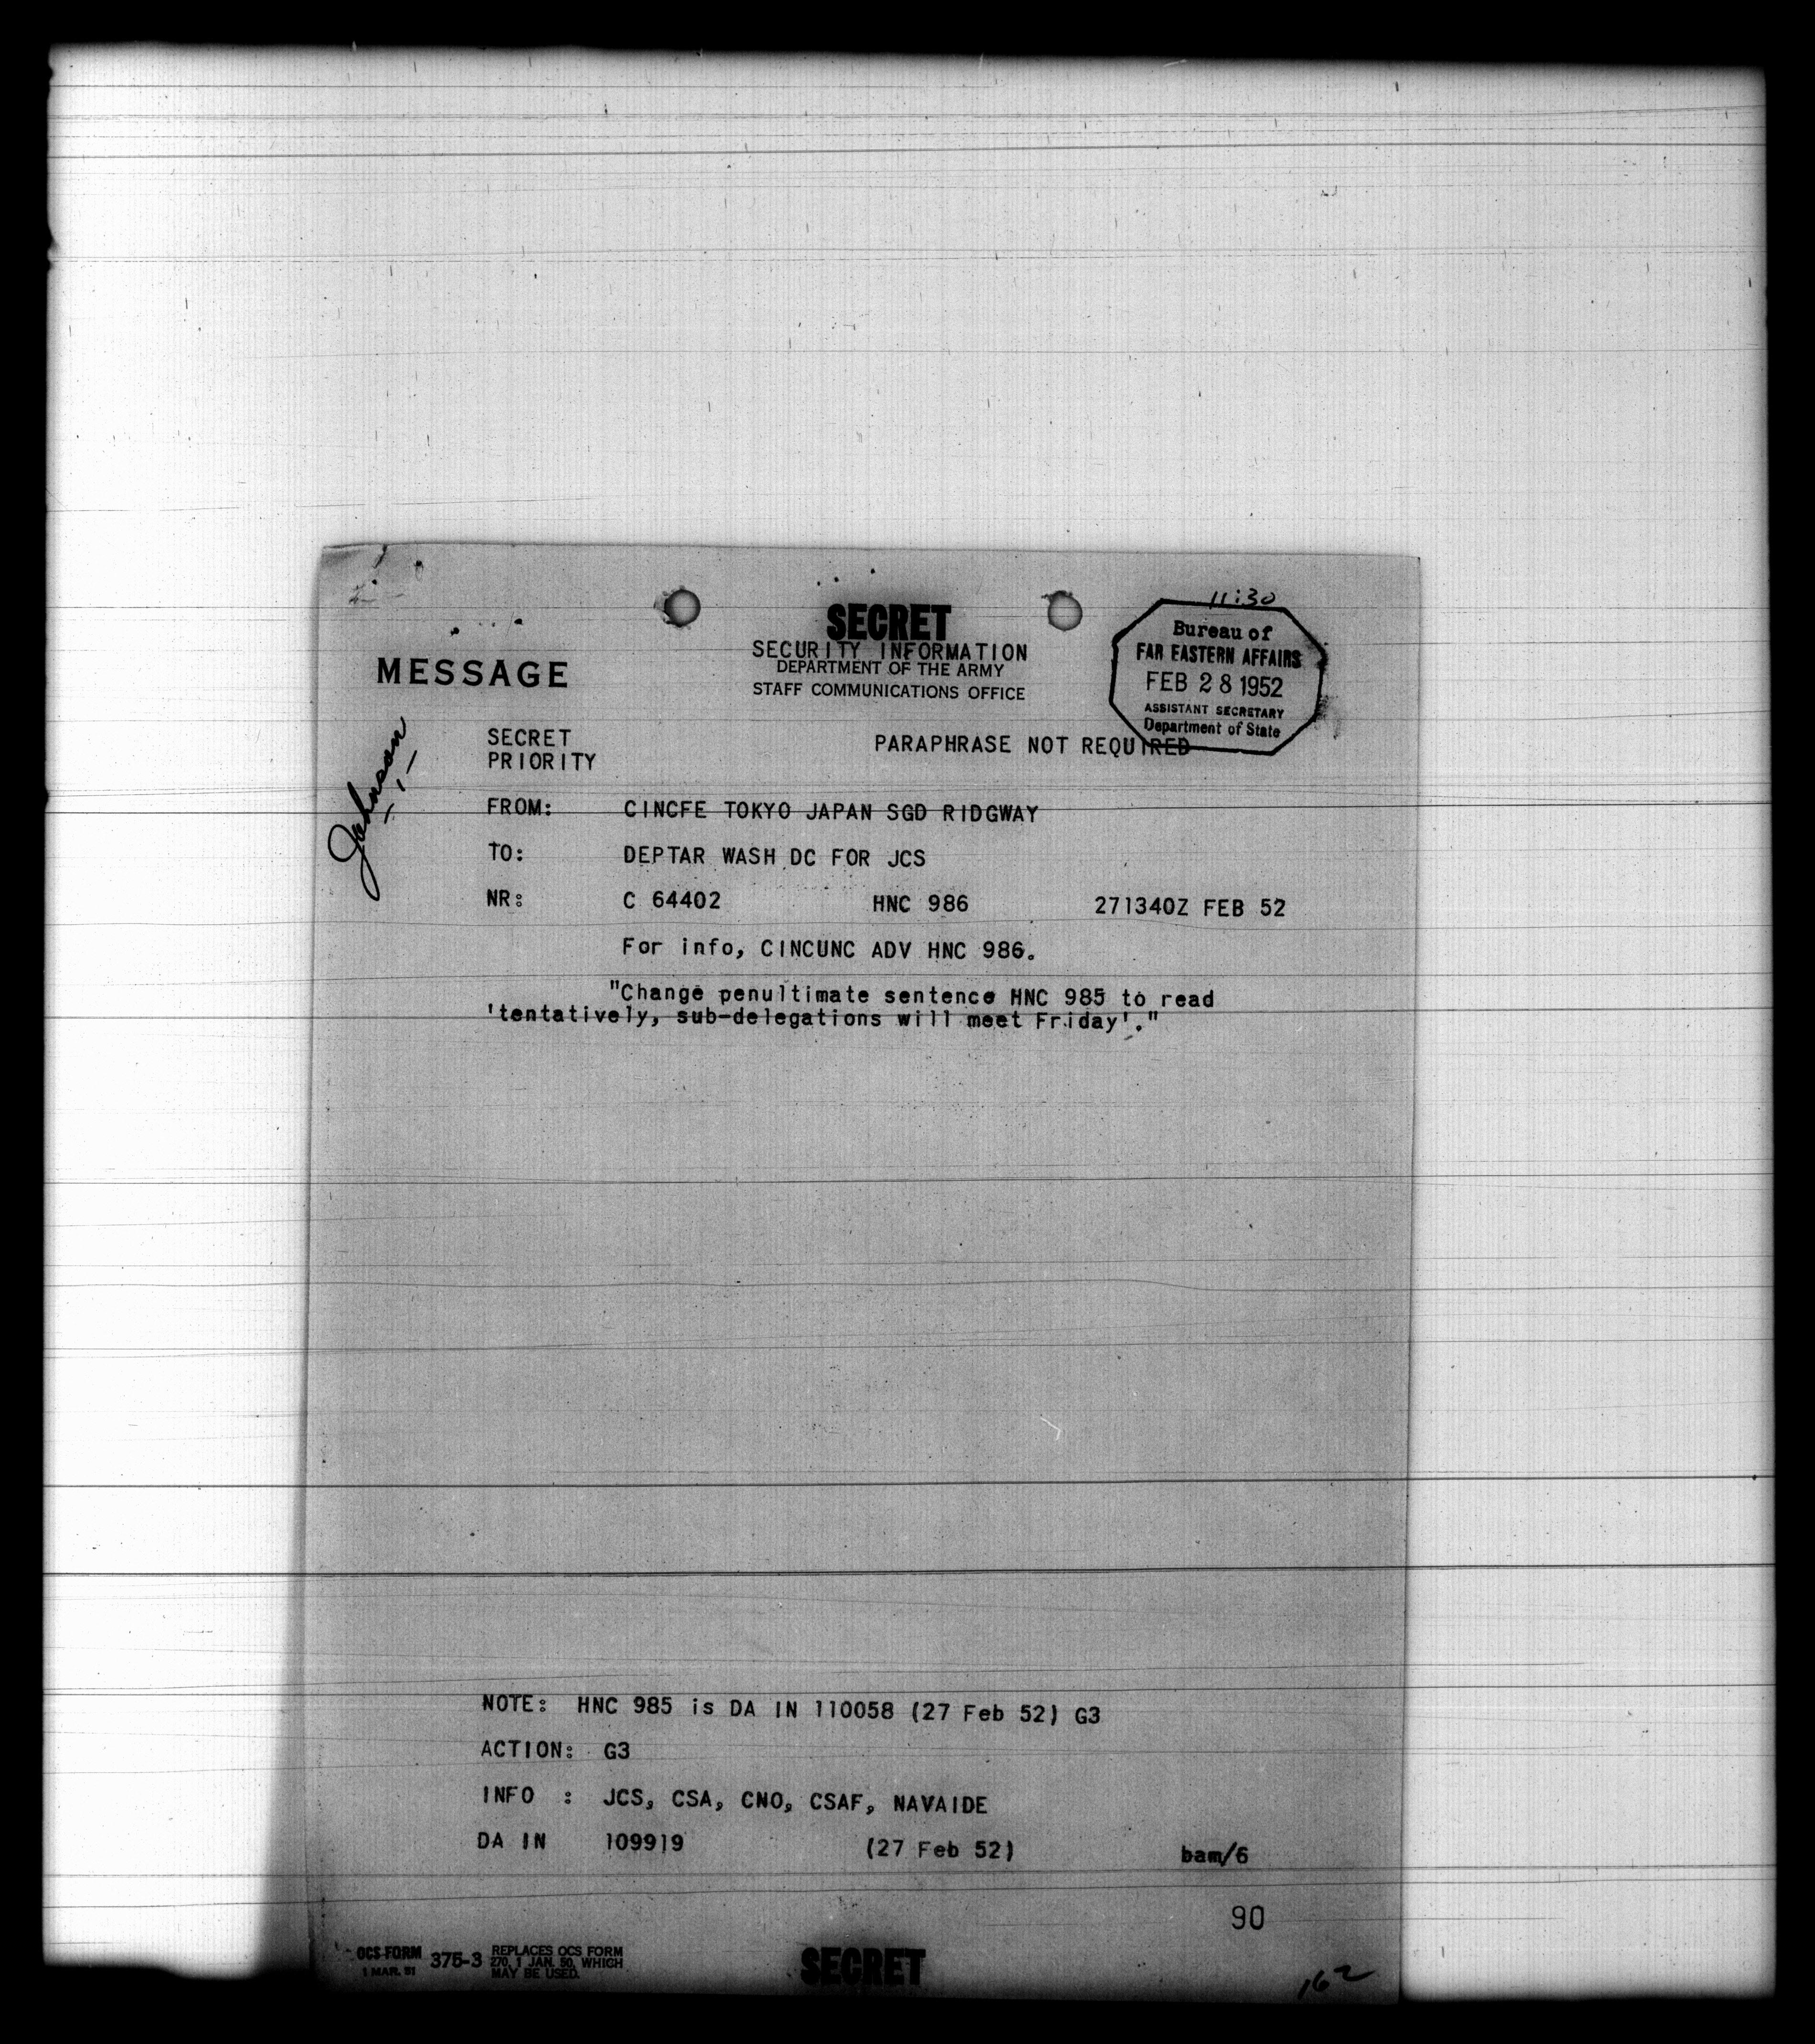 11:30
SECRET
SECURITY INFORMATION
DEPARTMENT OF THE ARMY
STAFF COMMUNICATIONS OFFICE
MESSAGE
Bureau of
FAR EASTERN AFFAIRS
FEB 28 1952
ASSISTANT SECRETARY
Department of State
Johnson
SECRET
PRIORITY
PARAPHRASE NOT REQUIRED
FROM: CINCFE TOKYO JAPAN SGD RIDGWAY
TO: DEPTAR WASH DC FOR JCS
NR: C 64402 HNC 986 271340Z FEB 52
For info, CINCUNC ADV HNC 986.
"Change penultimate sentence HNC 985 to read
'tentatively, sub-delegations will meet Friday'."
NOTE: HNC 985 is DA IN 110058 (27 Feb 52) G3
ACTION: G3
INFO : JCS, CSA, CNO, CSAF, NAVAIDE
DA IN 109919 (27 Feb 52) bam/6
90
OCS FORM 375-3 REPLACES OCS FORM
1 MAR. 51 270, 1 JAN. 50, WHICH
MAY BE USED.
SECRET
162